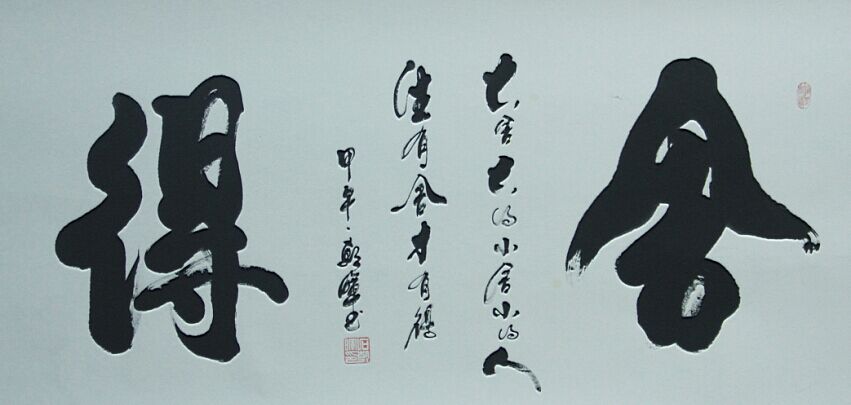 舍
大舍大得小舍小得人
有舍才有得
甲午
书
得